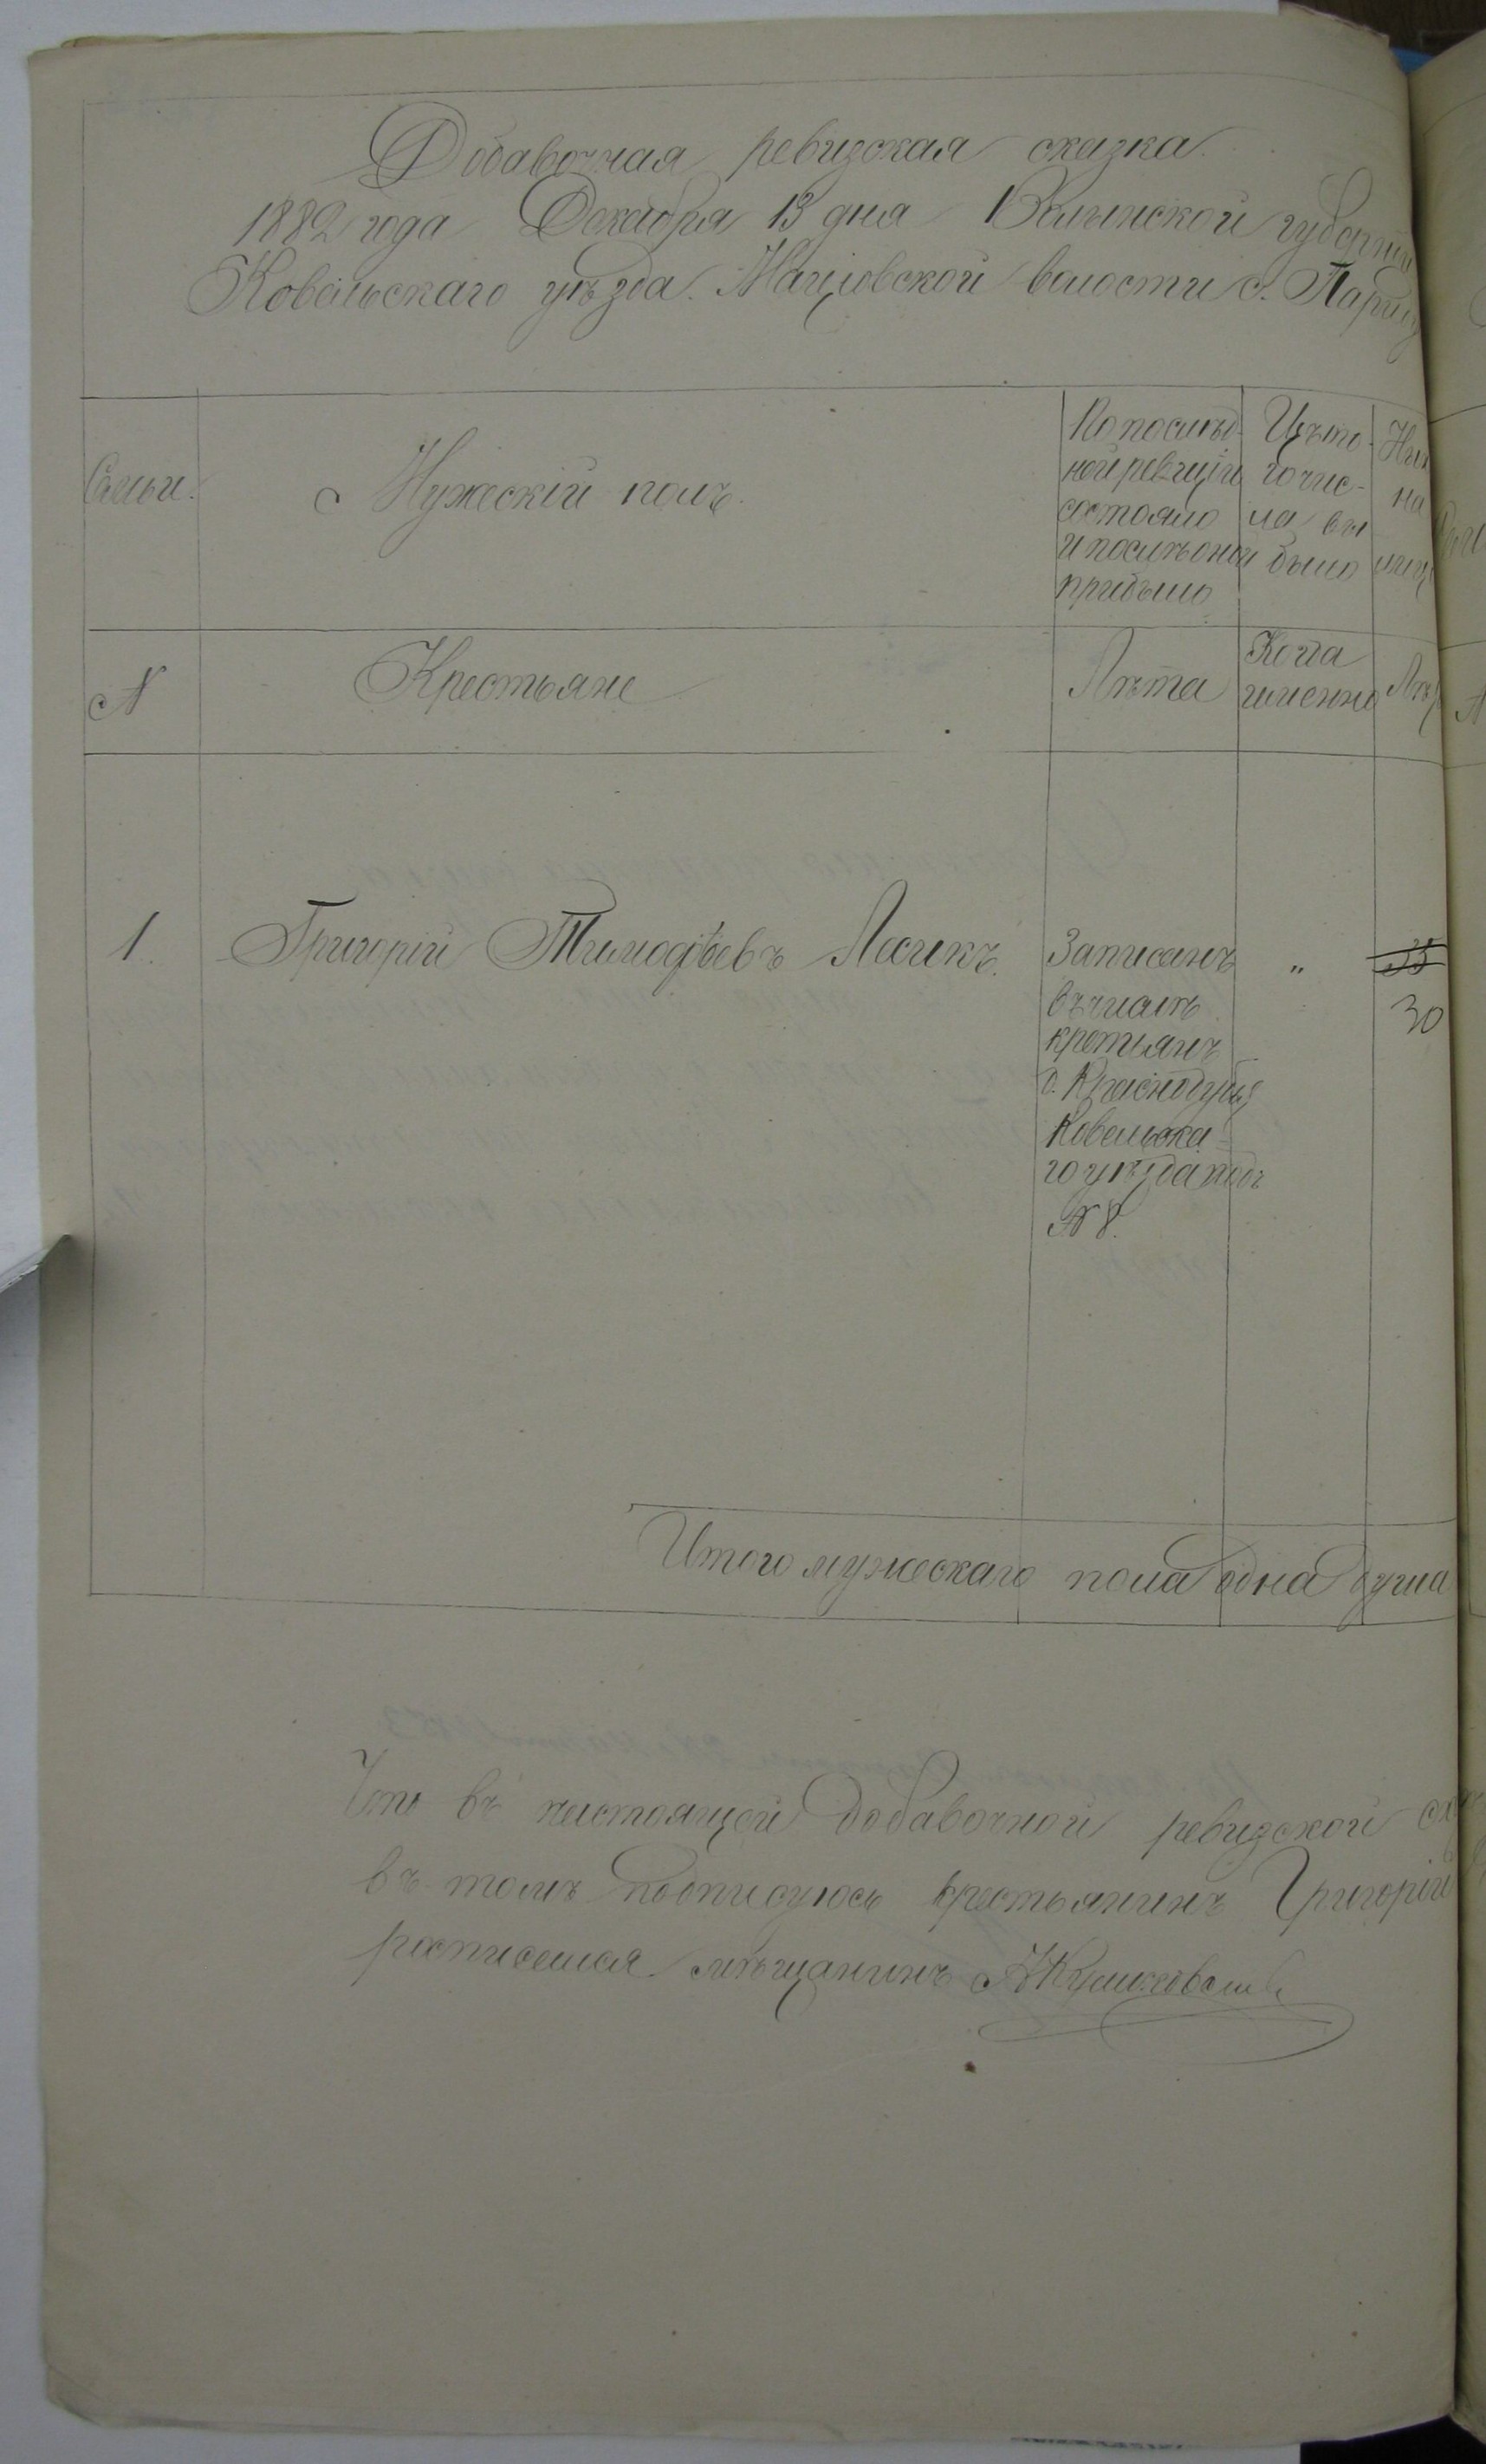 Добавочная ревизская сказка
1882 года Декабря 13 дня Волынской губерніи
Ковельскаго уѣзда Мацѣовской волости с.
Семьи.
Мужескій полъ.
По послѣд-
ней ревизіи
состояло
и послѣ оной
прибыло
Изъ то-
го чис-
ла вы
было
Нын
на
лиц
N
Крестьяне
Лѣта
Когда
именно
Лѣ
1.
Григорій Тимофѣевъ Лесикъ.
Записанъ
въ числѣ
кретьянъ
с.
Ковельска-
го уѣзда подъ
№ 8.
"
35
30
Итого мужескаго пола одна душа
Что въ настоящей добавочной ревизской
въ томъ подписуюсь крестьянинъ Григорій
росписался мѣщанинъ